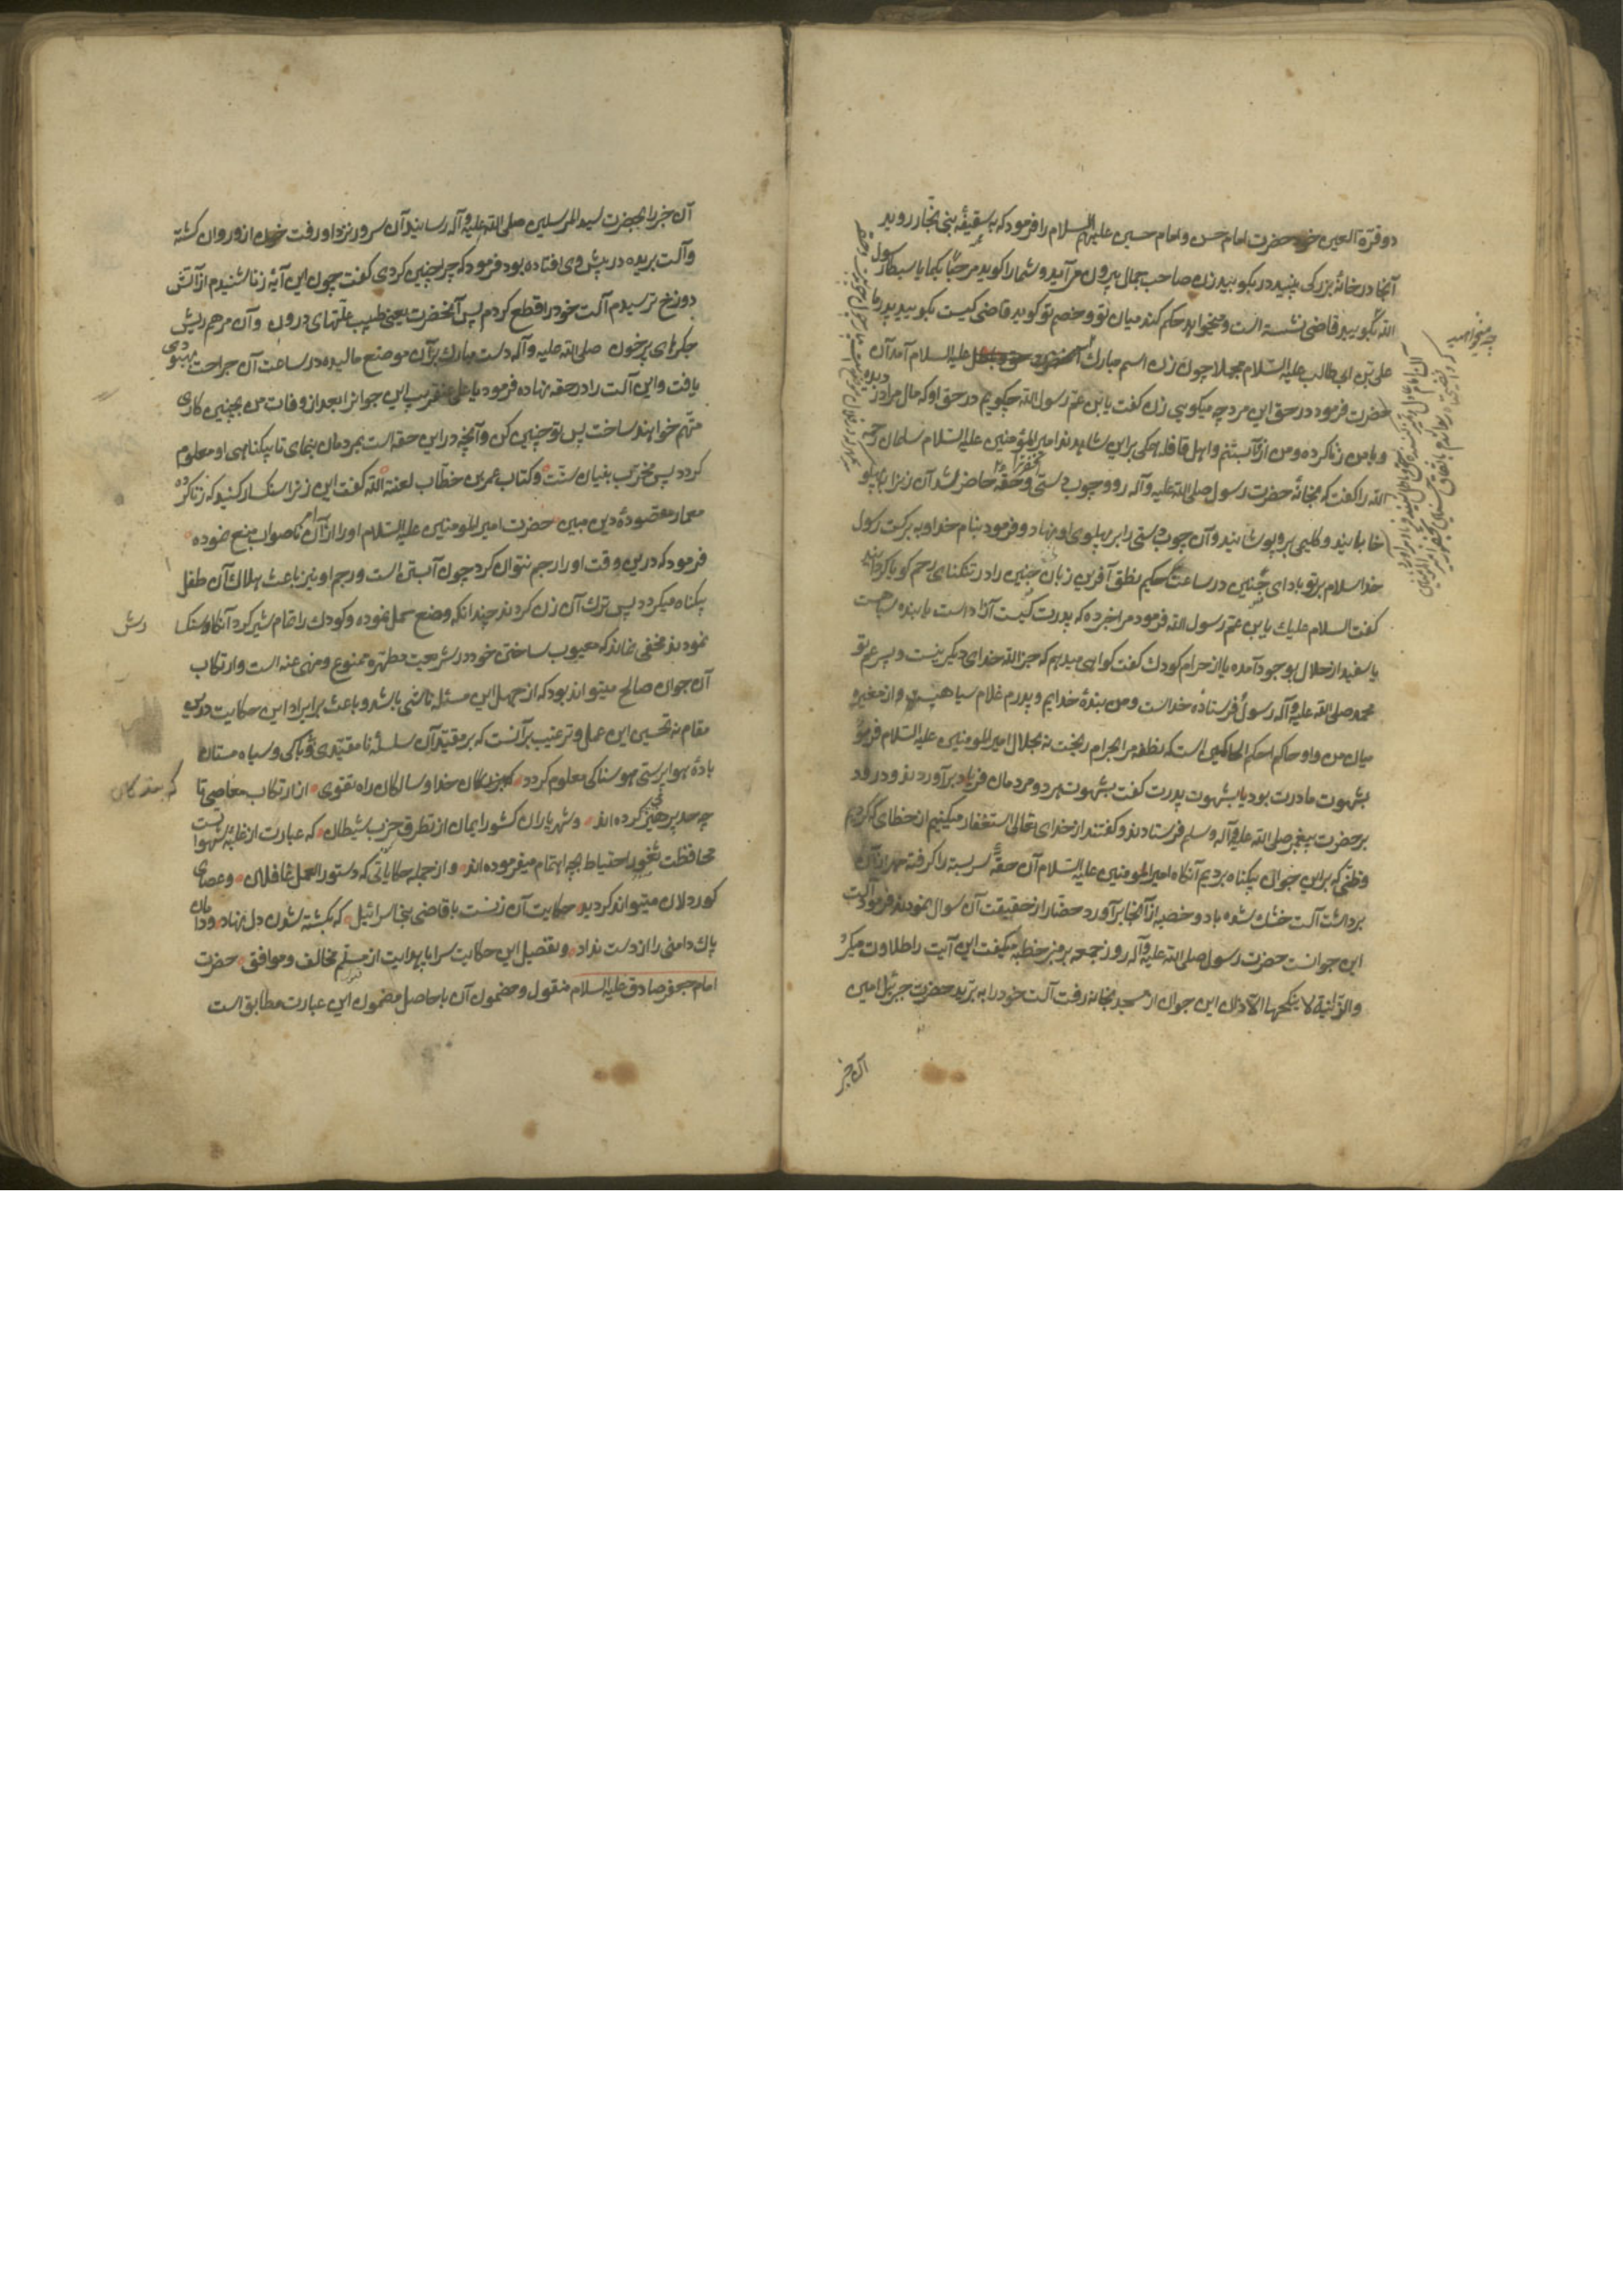 دو قرّة العین خود حضرت امام حسن و امام حسین علیهم السلام را فرمود که بسقیفۀ بنی نجّار روید
آنجا در خانۀ بزرگی بینید در بکوبید زن صاحب جمال بیرون می‌آید و شما را گوید مرحبا بکما یا سبطا رسول
الله بگویید قاضی نشسته است و میخواهد حکم کند میان تو و خصم تو گوید قاضی کیست بگویید پدر ما
علی بن ابی طالب علیه السّلام مجملا چون زن اسم مبارک آنحضرت علیه السلام آمد آن
حضرت فرمود در حق این مرد چه میگویی زن گفت یا بن عمّ رسول الله چگویم در حق او که مال مرا دزدیده
و با من زنا کرده و من از او آبستنم و اهل قافله همگی براین شاهدند امیر المؤمنین علیه السّلام سلمان رحمه
الله را گفت که بخانۀ حضرت رسول صلی الله علیه و آله رو و چوب دستی و حقّه حاضر شد آن زنرا بپهلو
خابانید و گلیمی برو پوشانید و آن چوب دستی را بر پهلوی او نهاد و فرمود بنام خدا و به برکت رسول
خدا سلام بر تو باد ای جنین در ساعت حکیم نطق آفرین زبان جنین را در تنگنای رحم گویا گردانید
گفت السلام علیک یا بن عمّ رسول الله فرمود مرا خبر ده که پدرت کیست آزاد است یا بنده سیاهست
یا سفید از حلال بوجود آمده یا از حرام کودک گفت گواهی میدهم که جز الله خدای دیگر نیست و پسر عم تو
محمد صلی الله علیه و آله رسول و فرستادۀ خداست و من بندۀ خدایم و پدرم غلام سیاهیست و از مغیره
میان من و او حاکم احکم الحاکمین است که نطفه مرا بحرام ریخت نه بحلال امیر المومنین علیه السّلام فرمود
بشهوت مادرت بود یا بشهوت پدرت گفت بشهوت هر دو مردمان فریاد برآوردند و درود
بر حضرت پیغمبر صلی الله علیه و آله و سلم فرستادند و گفتند از خدای تعالی استغفار میکنیم از خطای که کردیم
و ظنّی که براین جوان بیگناه بردیم آنگاه امیر المومنین علیه السّلام آن حقّۀ سربسته را گرفته مهر از آن
برداشت آلت خشک شده باد و خصیه از آنجا برآورد حضّار از حقیقت آن سوال نمودند فرمود آلت
این جوانست حضرت رسول صلی الله علیه و آله روز جمعه بر منبر خطبه میگفت این آیت را طلاوت میکرد
والزّانیة لا ینکحها الّا زان این جوان از مسجد بخانه رفت آلت خود را به برید حضرت جبرئیل امین
آن خبر
چه میخواهید
آن خبر را بحضرت سید المرسلین صلی الله علیه و آله رسانید آن سرور نزد او رفت خون از و روان گشته
و آلت بریده در پیش وی افتاده بود فرمود که چرا چنین کردی گفت چون این آیۀ زنا شنیدم از آتش
دوزخ ترسیدم آلت خود را قطع کردم پس آنحضرت یعنی طبیب علّتهای درون و آن مرهم ریش
جگرهای پرخون صلی الله علیه و آله دست مبارک بر آن موضع مالیده در ساعت آن جراحت بهبودی
یافت و این آلت را در حقه نهاده فرمود یا علی عنقریب این جوانرا بعد از وفات من بچنین کاری
متّهم خواهند ساخت پس تو چنین کن و آنچه در این حقه است بمردمان بنمای تا بیگناهی او معلوم
گردد پس مخرّب بنیان سنّت و کتاب عمر بن خطّاب لعنة الله گفت این زنرا سنگسار کنید که زنا کرده
معمار مقصودۀ دین مبین حضرت امیر المومنین علیه السّلام او را از آن امر ناصواب منع نموده
فرمود که درین وقت او را رجم نتوان کرد چون آبستن است و رجم او نیز باعث هلاک آن طفل
بیگناه میگردد پس ترک آن زن کردند چندانکه وضع حمل نموده و کودک را تمام شیر کرد آنگاه سنگسا
رش
نمودند مخفی نماند که معیوب ساختن خود در شریعت مطهّره ممنوع و منهی عنه است و ارتکاب
آن جوان صالح میتواند بود که از جهل این مسئله ناشی باشد و باعث بر ایراد این حکایت درین
مقام نه تحسین این عمل و ترغیب بر آنست که بر مقیّد آن سلسلۀ نامقیّدی و بیباکی و سیاه مستان
بادۀ هوا پرستی هوسناکی معلوم گردد که بندگان خدا و سالکان راه تقوی از ارتکاب معاصی تا
چه حد پرهیز کرده‌اند و شهریاران کشور ایمان از تطرق حزب شیطان که عبارت از غلبۀ شهواتست
محافظت ثغور احتیاط بچه اهتمام میفرموده‌اند و از جمله حکایاتی که دستور العمل غافلان و عصای
کوردلان میتواند گردید حکایت آن زنست با قاضی بنی اسرائیل که بکشته شدن دل نهاد و دامان
پاک دامنی را از دست نداد و تفصیل این حکایت سراپا هدایت از مسلّم مخالف و موافق حضرت
امام جعفر صادق علیه السلام منقول و مضمون آن با حاصل مضمون این عبارت مطابق است